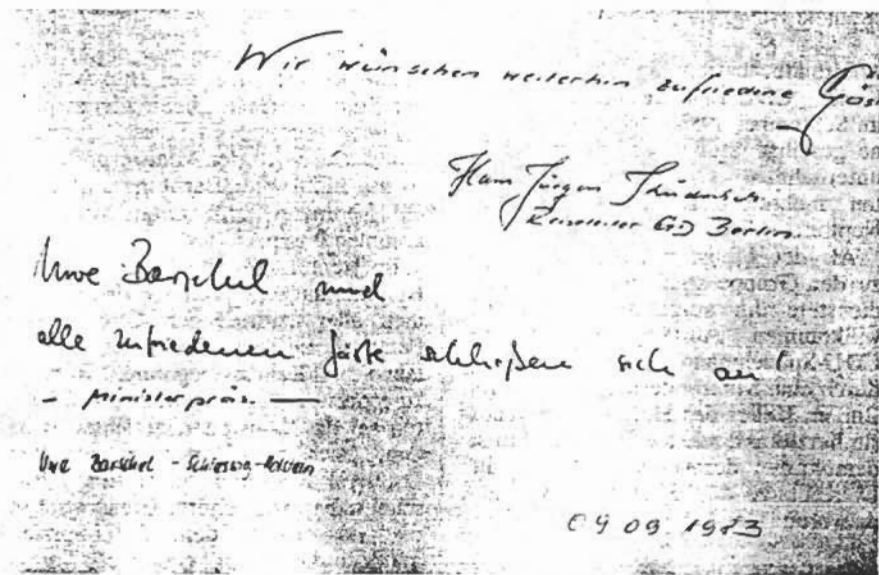 Wir wünschen weiterhin zufriedene Gäs
Hans Jürgen
GD Berlin
Uwe Barschel und
alle zufriedenen Gäste schließen sich an!
- Ministerpräs. -
Uwe Barschel - Schleswig-Holstein
04 09 1983